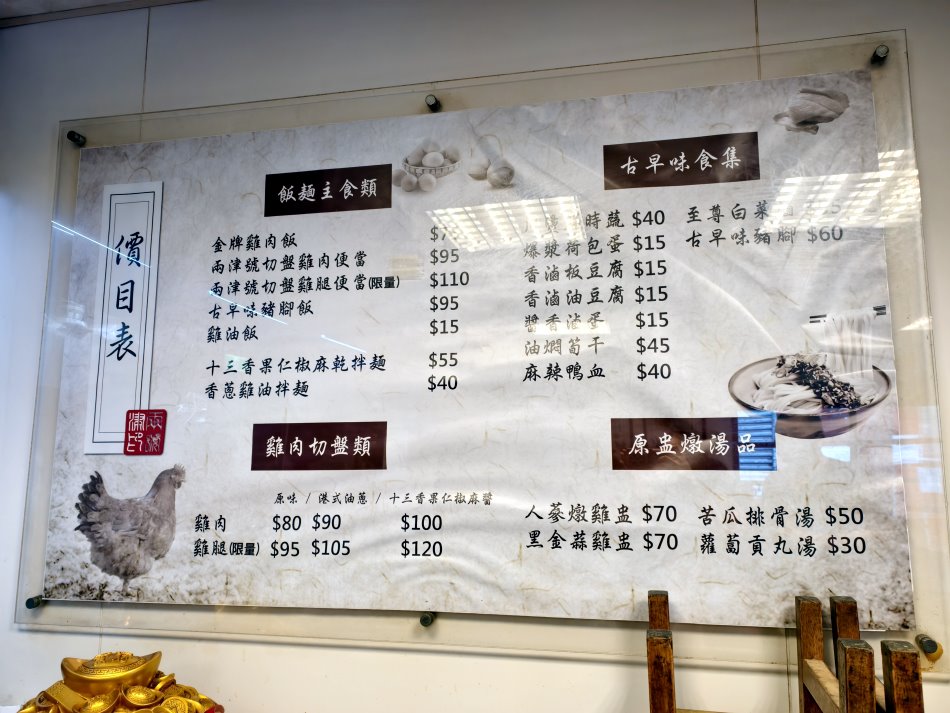 價目表
飯麵主食類
金牌雞肉飯
兩津號切盤雞肉便當 $95
兩津號切盤雞腿便當(限量) $110
古早味豬腳飯 $95
雞油飯 $15
十三香果仁椒麻乾拌麵 $55
香蔥雞油拌麵 $40
古早味食集
時蔬 $40
爆漿荷包蛋 $15
香滷板豆腐 $15
香滷油豆腐 $15
醬香滷蛋 $15
油燜筍干 $45
麻辣鴨血 $40
至尊白菜
古早味豬腳 $60
雞肉切盤類
原味 / 港式油蔥 / 十三香果仁椒麻醬
雞肉 $80 $90 $100
雞腿(限量) $95 $105 $120
原盅燉湯品
人蔘燉雞盅 $70
黑金蒜雞盅 $70
苦瓜排骨湯 $50
蘿蔔貢丸湯 $30